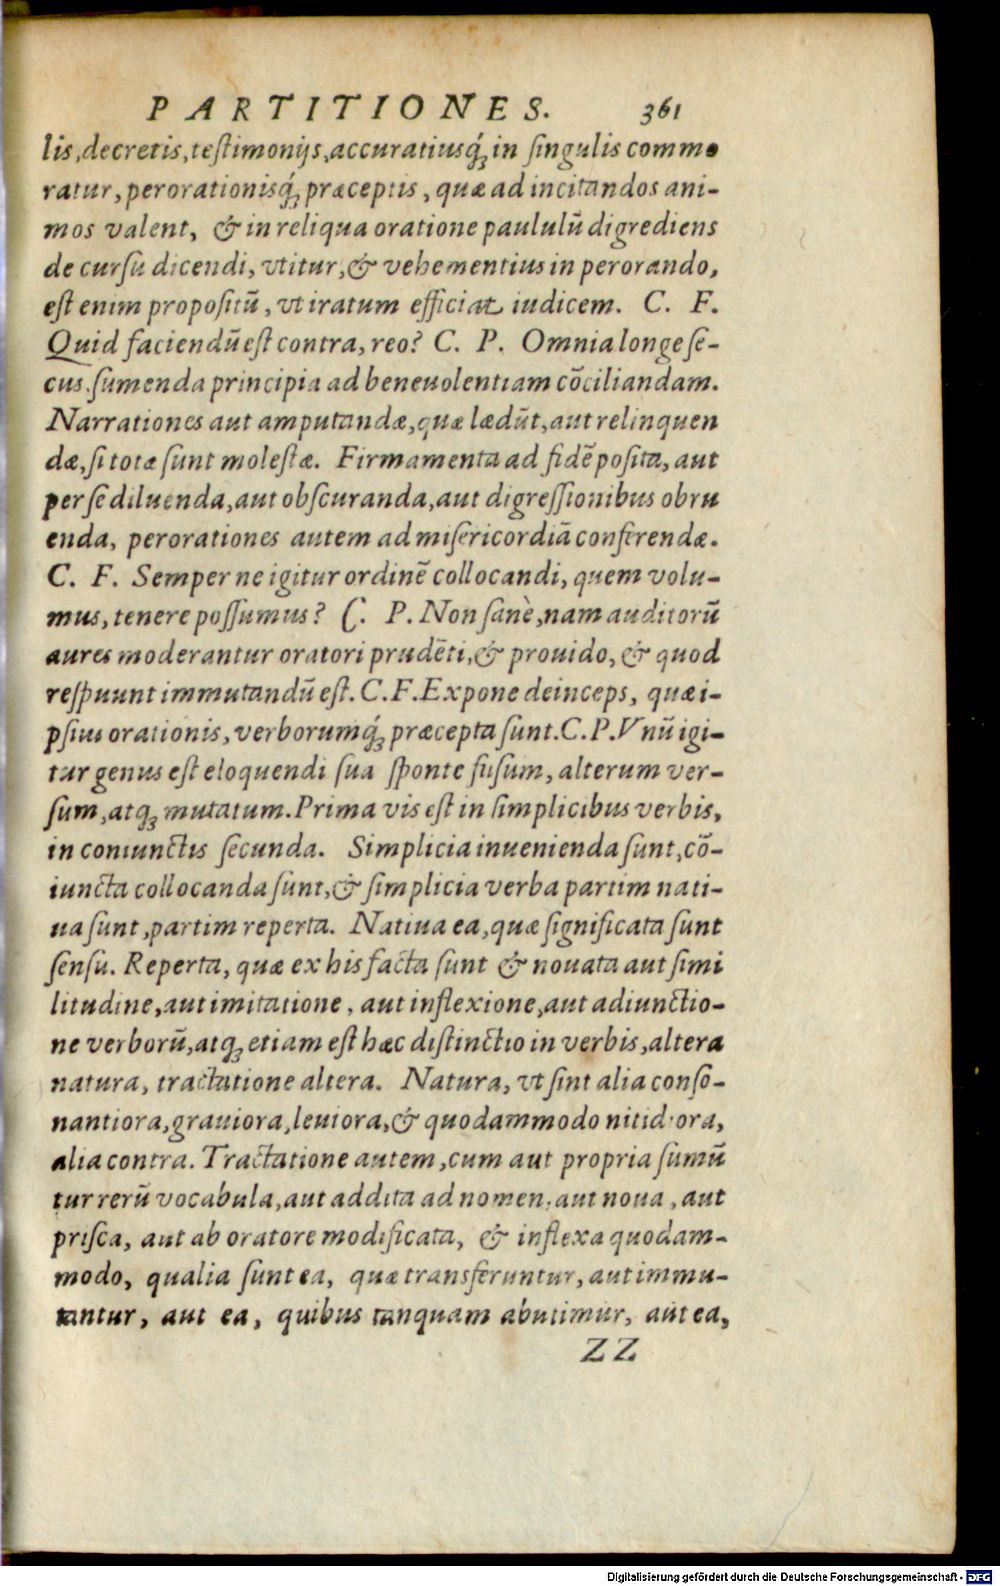 PARTITIONES. 361
lis, decretis, teſtimonijs, accuratiusq́ꝫ in ſingulis commo
ratur, perorationisq́ꝫ præceptis, quæ ad incitandos ani-
mos valent, & in reliqua oratione paululū digrediens
de curſu dicendi, vtitur, & vehementius in perorando,
eſt enim propoſitū, vt iratum efficiat iudicem. C. F.
Quid faciendū eſt contra, reo? C. P. Omnia longe ſe-
cus. ſumenda principia ad beneuolentiam cōciliandam.
Narrationes aut amputandæ, quæ lædūt, aut relinquen
dæ, ſi totæ ſunt moleſtæ. Firmamenta ad fidē poſita, aut
per ſe diluenda, aut obſcuranda, aut digreſſionibus obru
enda, perorationes autem ad miſericordiā conferendæ.
C. F. Semper ne igitur ordinē collocandi, quem volu-
mus, tenere poſſumus? C. P. Non ſanè, nam auditorū
aures moderantur oratori prudēti, & prouido, & quod
reſpuunt immutandū eſt. C. F. Expone deinceps, quæ i-
pſius orationis, verborumq́ꝫ præcepta ſunt. C. P. Vnū igi-
tur genus eſt eloquendi ſua ſponte fuſum, alterum ver-
ſum, atqꝫ mutatum. Prima vis eſt in ſimplicibus verbis,
in coniunctis ſecunda. Simplicia inuenienda ſunt, cō-
iuncta collocanda ſunt, & ſimplicia verba partim nati-
ua ſunt, partim reperta. Natiua ea, quæ ſignificata ſunt
ſenſu. Reperta, quæ ex his facta ſunt & nouata aut ſimi
litudine, aut imitatione, aut inflexione, aut adiunctio-
ne verborū, atqꝫ etiam eſt hæc diſtinctio in verbis, altera
natura, tractatione altera. Natura, vt ſint alia conſo-
nantiora, grauiora, leuiora, & quodammodo nitidiora,
alia contra. Tractatione autem, cum aut propria ſumū
tur rerū vocabula, aut addita ad nomen, aut noua, aut
priſca, aut ab oratore modificata, & inflexa quodam-
modo, qualia ſunt ea, quæ transferuntur, aut immu-
tantur, aut ea, quibus tanquam abutimur, aut ea,
ZZ
Digitalisierung gefördert durch die Deutsche Forschungsgemeinschaft - DFG